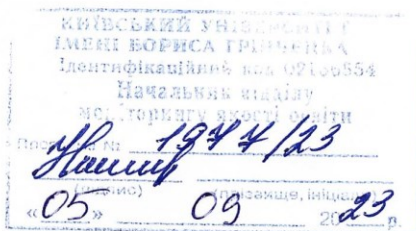 КИЇВСЬКИЙ УНІВЕРСИТЕТ
ІМЕНІ БОРИСА ГРІНЧЕНКА
Ідентифікаційний код 02136554
Начальник відділу
моніторингу якості освіти
№ 1977/23
(підпис) (прізвище, ініціали)
«05» 09 2023 р.